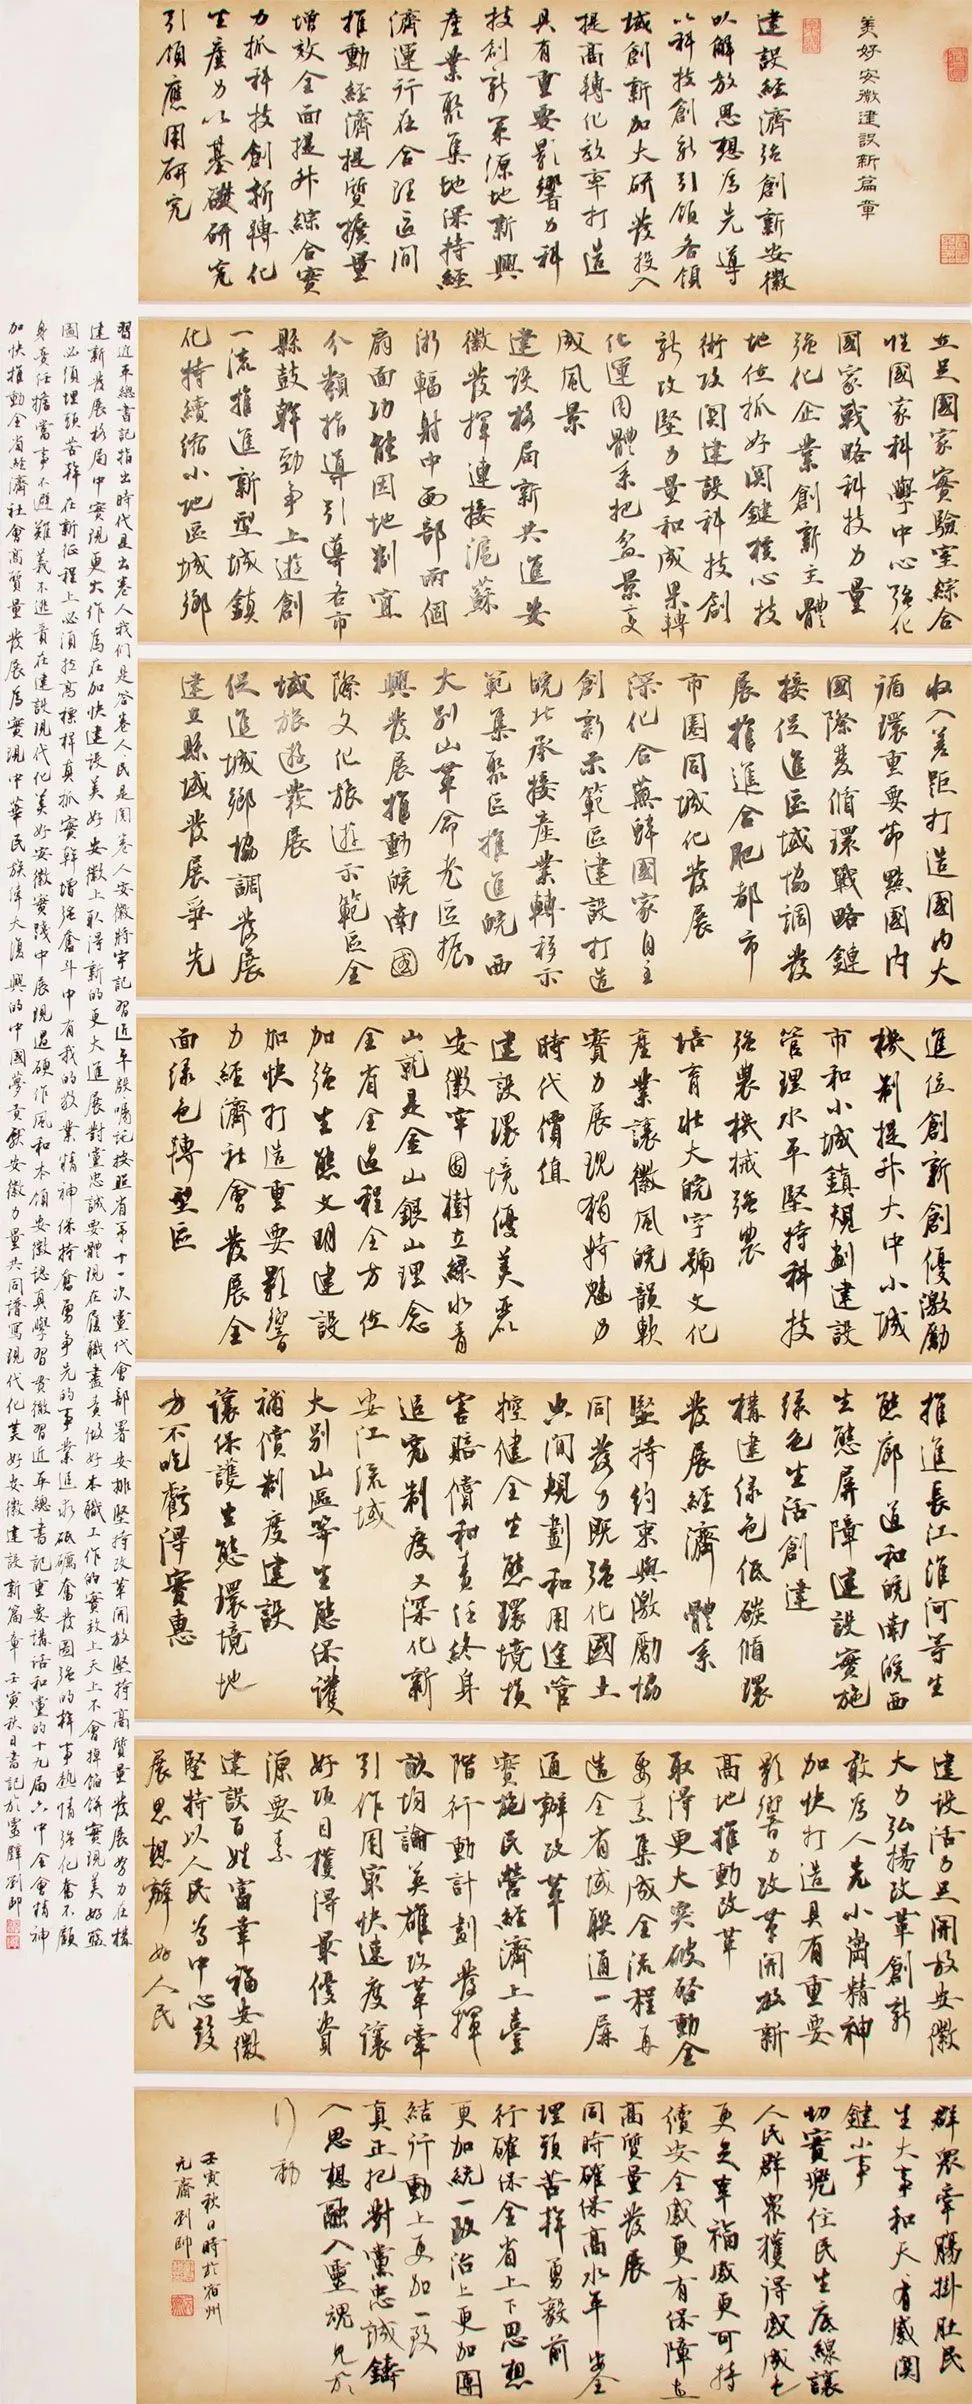 美好安徽建設新篇章
建設經濟強創新安徽
以解放思想為先導
以科技創新引領各領
域創新加大研發投入
提高轉化效率打造
具有重要影響力科
技創新策源地新興
產業聚集地保持經
濟運行在合理區間
推動經濟提質擴量
增效全面提升綜合實
力抓科技創新轉化
生產力以基礎研究
引領應用研究
立足國家實驗室綜合
性國家科學中心強化
國家戰略科技力量
強化企業創新主體
地位抓好關鍵核心技
術攻關建設科技創
新攻堅力量和成果轉
化運用體系把盆景變
成風景
建設格局新共進安
徽發揮連接滬蘇
浙輻射中西部兩個
扇面功能因地制宜
分類指導引導各市
縣鼓幹勁爭上遊創
一流推進新型城鎮
化持續縮小地區城鄉
收入差距打造國內大
循環重要節點國內
國際雙循環戰略鏈
接促進區域協調發
展推進合肥都市
市圈同城化發展
深化合蕪蚌國家自主
創新示範區建設打造
皖北承接產業轉移示
範集聚區推進皖西
大別山革命老區振
興發展推動皖南國
際文化旅遊示範區全
域旅遊發展
促進城鄉協調發展
建立縣域發展爭先
進位創新創優激勵
機制提升大中小城
市和小城鎮規劃建設
管理水平堅持科技
強農機械強農
培育壯大皖字號文化
產業讓徽風皖韻軟
實力展現獨特魅力
時代價值
建設環境優美麗
安徽牢固樹立綠水青
山就是金山銀山理念
全省全過程全方位
加強生態文明建設
加快打造重要影響
力經濟社會發展全
面綠色轉型區
推進長江淮河等生
態廊道和皖南皖西
生態屏障建設實施
綠色生活創建
構建綠色低碳循環
發展經濟體系
堅持約束與激勵協
同發力既強化國土
空間規劃和用途管
控健全生態環境損
害賠償和責任終身
追究制度又深化新
安江流域
大別山區等生態保護
補償制度建設
讓保護生態環境地
方不吃虧得實惠
建設活力足開放安徽
大力弘揚改革創新
敢為人先小崗精神
加快打造具有重要
影響力改革開放新
高地推動改革
取得更大突破啓動全
要素集成全流程再
造全省域聯通一屏
通辦改革
實施民營經濟上臺
階行動計劃發揮
畝均論英雄改革牽
引作用最快速度讓
好項目獲得最優資
源要素
建設百姓富幸福安徽
堅持以人民為中心發
展思想辦好人民
群衆牽腸掛肚民
生大事和天有感關
鍵小事
切實兜住民生底線讓
人民群衆獲得感成色
更足幸福感更可持
續安全感更有保障在
高質量發展
同時確保高水平安全
埋頭苦幹勇毅前
行確保全省上下思想
更加統一政治上更加團
結行動上更加一致
真正把對黨忠誠鑄
入思想融入靈魂見於
行動
壬寅秋日時於宿州
元齋劉帥
習近平總書記指出時代是出卷人我们是答卷人民是閱卷人安徽將牢記習近平殷囑託按照省第十一次黨代會部署安排堅持改革開放堅持高質量發展努力在構
建新發展格局中實現更大作為在加快建設美好安徽上取得新的更大進展對黨忠誠要體現在履職盡責做好本職工作的實效上天上不會掉餡餅實現美好藍
圖必須埋頭苦幹在新征程上必須拉高標桿真抓實幹增強奮斗中有我的敬業精神保持奮勇爭先的事業追求砥礪奮發圖強的幹事熱情強化奮不顧
身責任擔當事不避難義不逃責在建設現代化美好安徽實踐中展現過硬作風和本領安徽認真學習貫徹習近平總書記重要講話和黨的十九届六中全會精神
加快推動全省經濟社會高質量發展為實現中華民族偉大復興的中國夢貢獻安徽力量共同譜寫現代化美好安徽建設新篇章壬寅秋日書記於靈璧劉帥